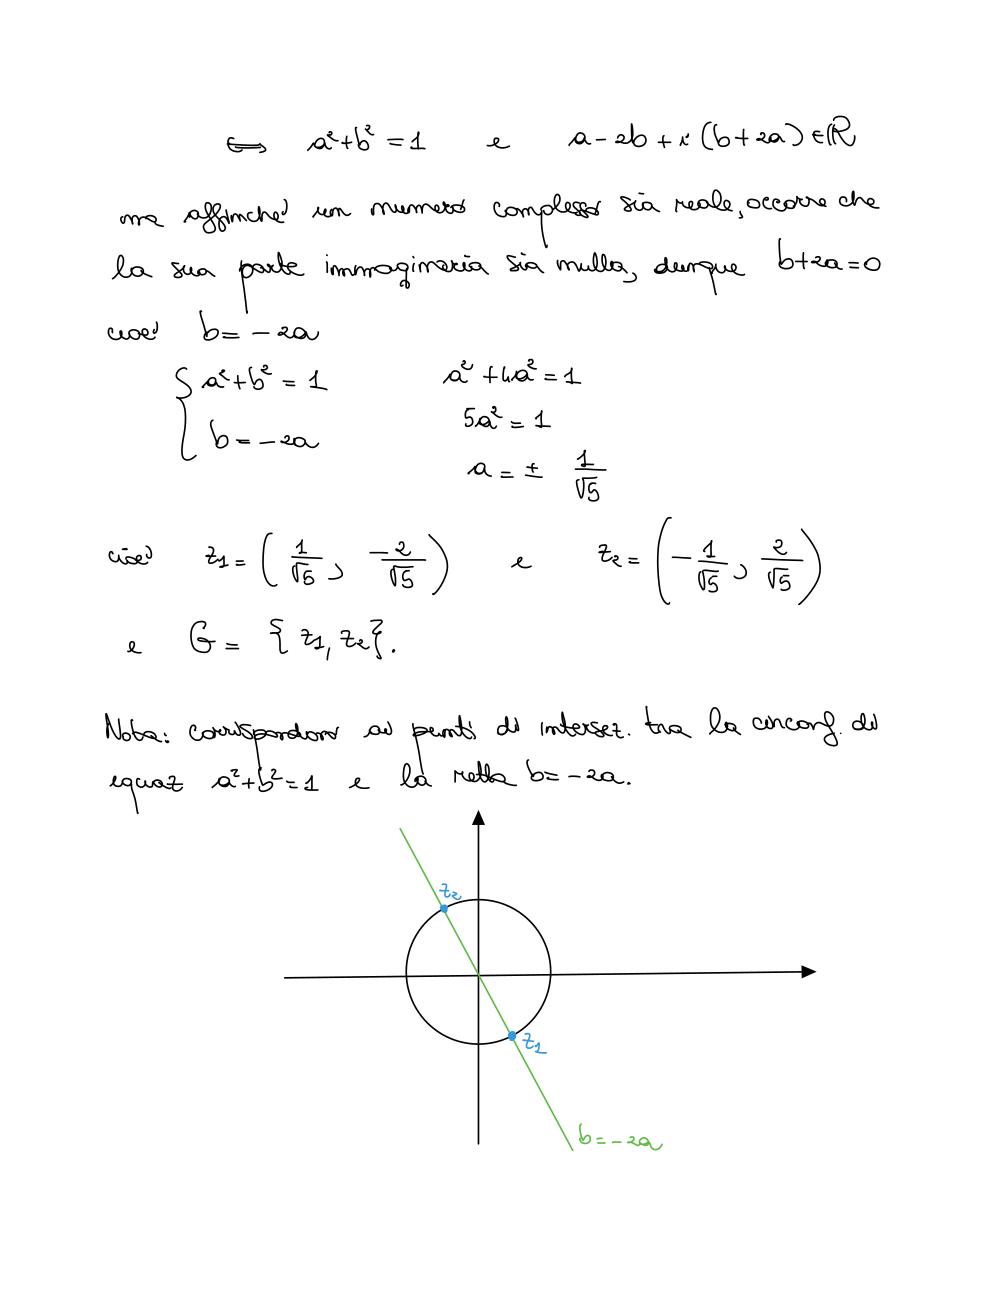 ⟺ a²+b² = 1 e a - 2b + i (b + 2a) ∈ ℝ
ma affinché un numero complesso sia reale, occorre che
la sua parte immaginaria sia nulla, dunque b+2a=0
cioè b = -2a
{ a²+b² = 1 a² + 4a² = 1
b = -2a 5a² = 1
a = ± 1/√5
cioè z₁ = (1/√5, -2/√5) e z₂ = (-1/√5, 2/√5)
e G = { z₁, z₂}.
Nota: corrispondono ai punti di intersez. tra la circonf. di
equaz a²+b²=1 e la retta b = -2a.
z₂
z₁
b = -2a